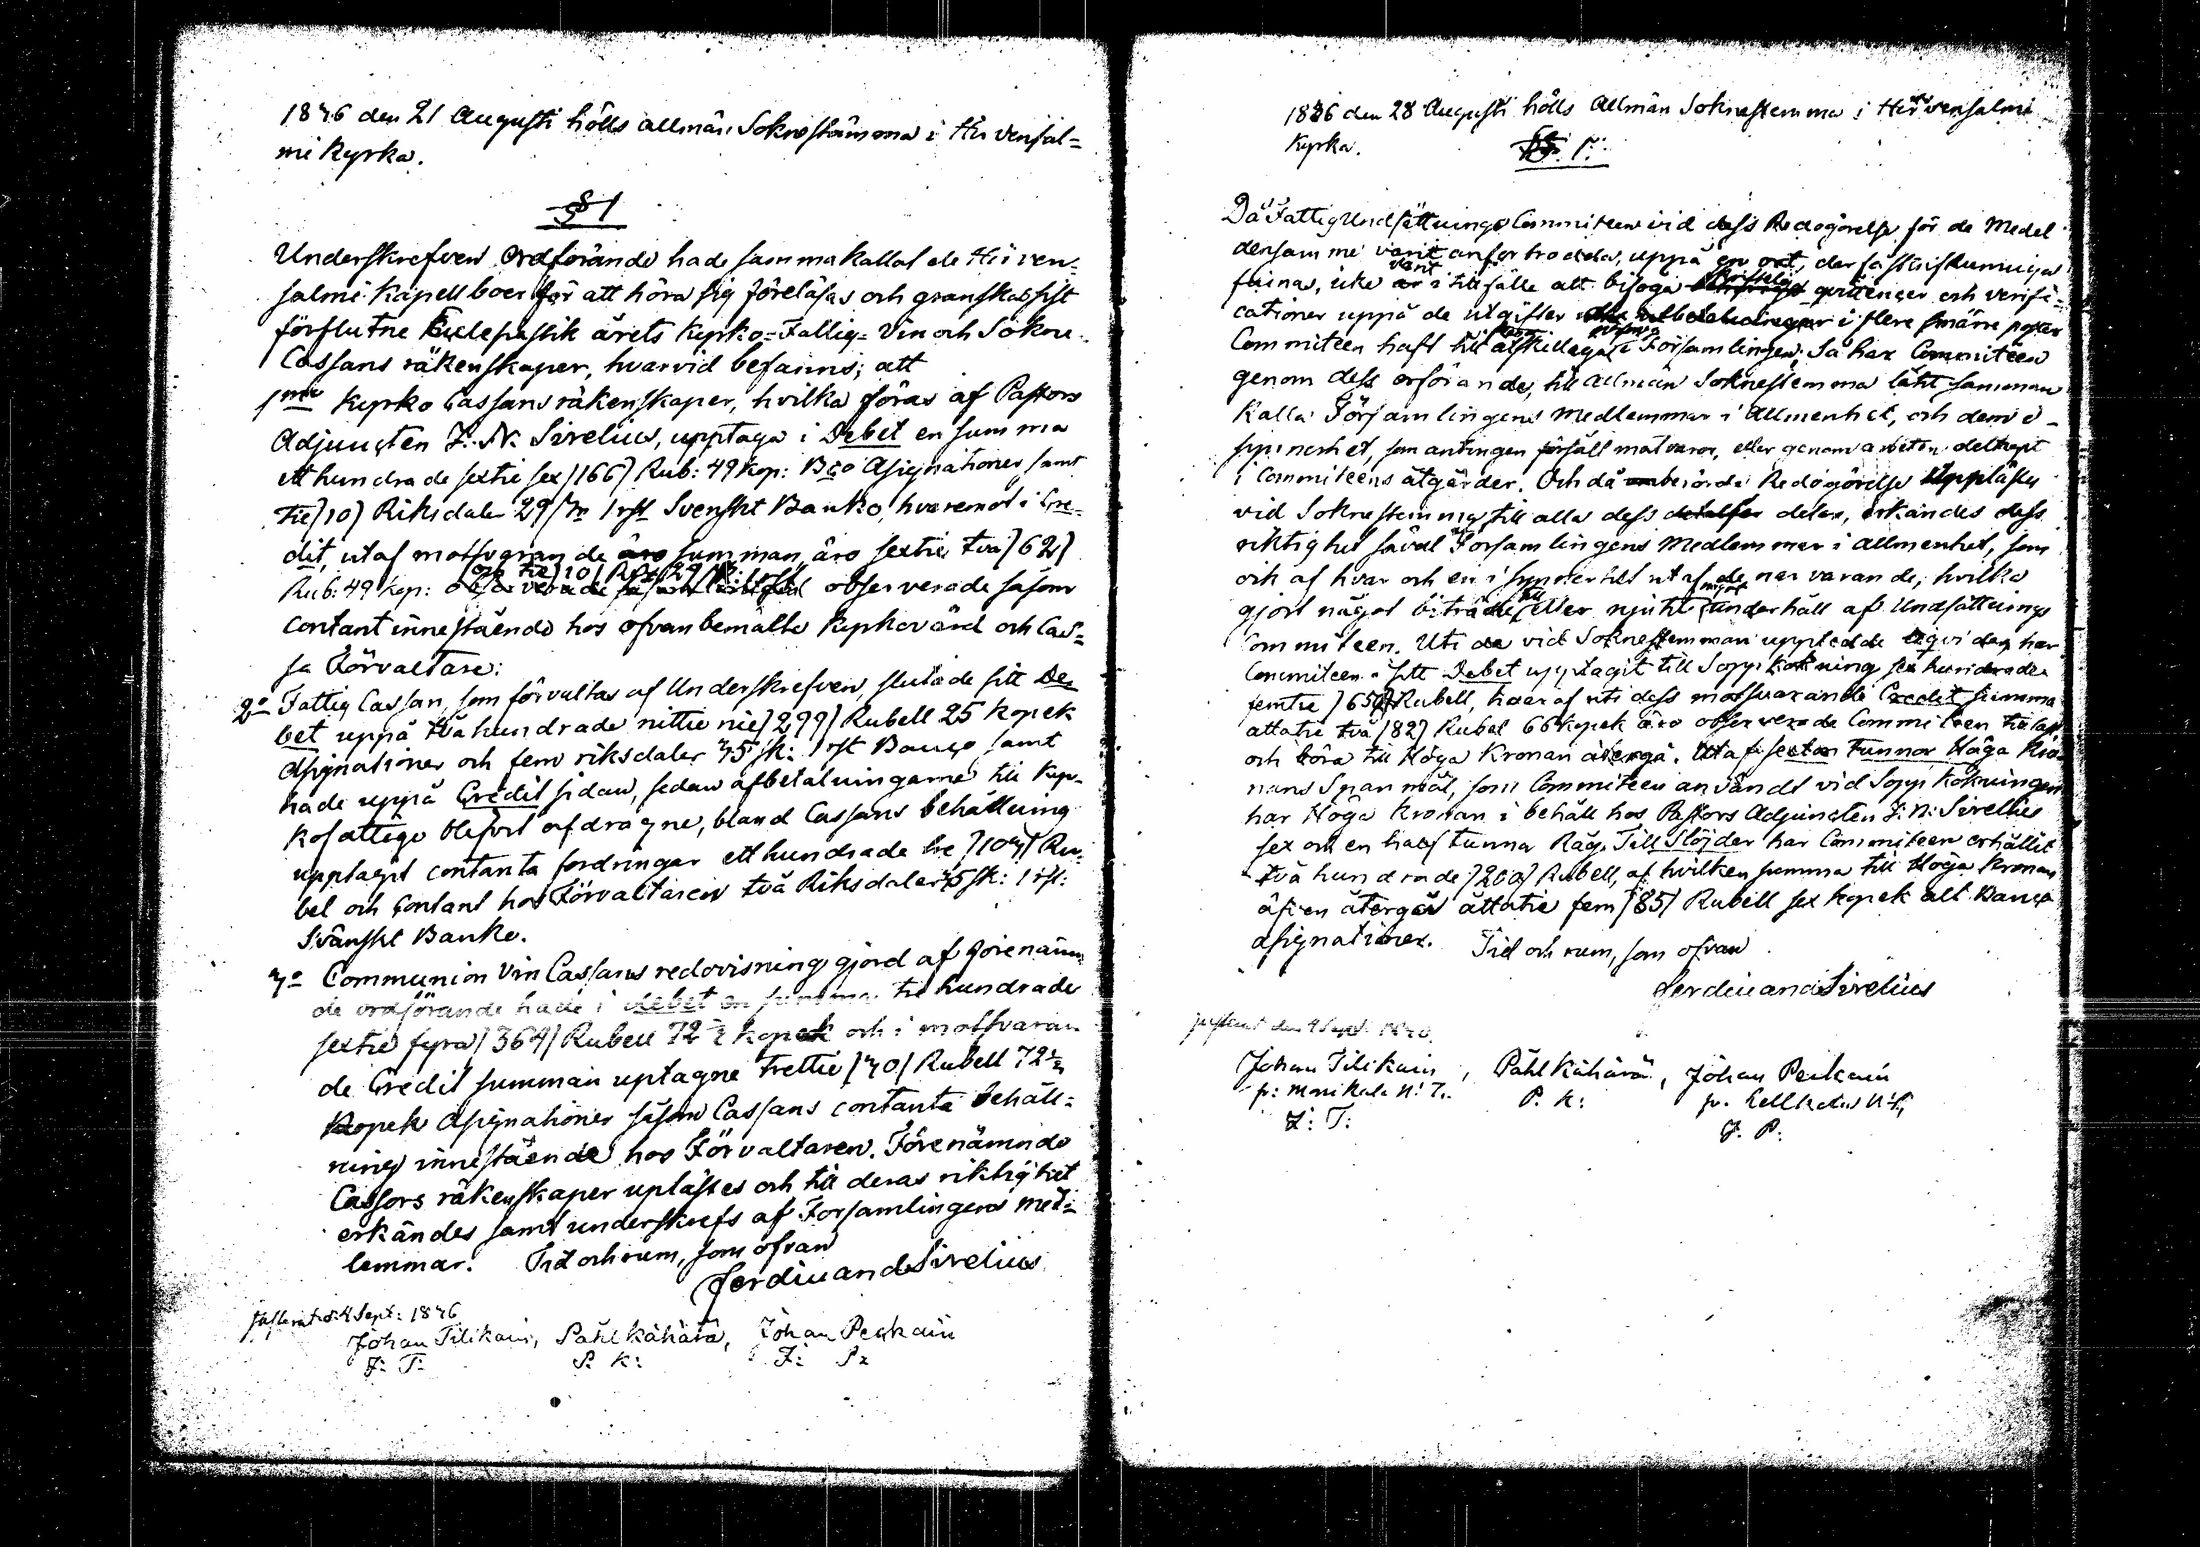 1836 den 21 Augusti hölls allmän Soknestämma i Hirvensal=
mi Kyrka.
§ 1
Underskrefven Ordförande hade sammakallat de Hirven=
salmi Kapellboer för att höra sig föreläsas och granskas sist
förflutne Ecklesiastik årets Kyrko=Fattig=Vin och Sokne
Cassans räkenskaper, hvarvid befanns; att
1mo Kyrko Cassans räkenskaper, hvilka föras af Pastors
Adjuncten J. N. Sirelius, upptaga i Debet en summa
ett hundrade sextie sex /166/ Rub: 49 kop: Bco Assignationer samt
Tie /10/ Riksdaler 29 sk 1 rst Svenskt Banko, hvaremot i Cre=
dit, utaf motsvarande summan äro sextie två /62/
Rub: 49 kop: observerade såsom
contant innestående hos ofvanbemälte Kyrkovärd och Cas=
sa Förvaltare:
2o Fattig Cassan, som förvaltas af Underskrefven, slutade sitt De
bet uppå två hundrade nittie nie /299/ Rubell 25 Kopek
Assignationer och fem riksdaler 35 sk: 1 rst Banco samt
hade uppå Credit sidan, sedan afbetalningarne till Kyr=
kofattige blifvit afdragne, bland Cassans behållning
upptagit contanta fordringar ett hundrade tre /103/ Ru=
bel och Contant hos Förvaltaren två Riksdaler 35 sk: 1 rst:
Svänskt Banko.
3o Communion Vin Cassans redovisning gjord af förenämn
de ordförande hade i debet en summa tre hundrade
sextie fyra /364/ Rubell 72 ½ kopek och i motsvaran
de Credit summan uptagne trettie /30/ Rubell 72 ½
Kopek Assignationer såsom Cassans contanta behåll=
ning innestående hos Förvaltaren. Förenämnde
Cassors räkenskaper uplästes och till deras riktighet
erkändes samt underskrefs af Forsamlingens med=
lemmar. Tid och rum, som ofvan
Ferdinand Sirelius
Justerat d: 4 Sept: 1836
Johan Tilikain, Påhl Kähärä, Johan Peikain
J: T: P. K: J: P:
1836 den 28 Augusti hölls Allmän Soknestemma i Hirvensalmi
Kyrka.
§. 1:
Då FattigUndsättnings Committeen vid dess Redogörelse för de Medel
densamme varit anförtrodda, uppå en ort, der få skrifkunniga
finnas, icke varit i tillfälle att bifoga skriftelige quittenser och verifi=
cationer uppå de utgifter i flere smärre poster
Committeen haft till åtskillige i Församlingen; Så har Committeen
genom dess orförande, till Allmän Soknestemma låtit samman
Kalla Församlingens Medlemmar i Allmenhet, och dem i
synnerhet, som antingen försålt matvaror, eller genom arbeten deltagit
i Committeens åtgärder. Och då berörde Redogörelse Uppläses
vid Soknestemning, till alla dess delar, erkändes dess
riktighet såväl Församlingens Medlemmar i allmenhet, som
och af hvar och en i synnerhet utaf de närvarande, hvilka
gjort något biträde till eller njutit något underhåll af Undsättnings
Committeen. Uti de vid Soknestemman uppledde liqvider har
Committeen i sitt Debet upptagit till Soppkokning sex hundrade
femtie /650/ Rubell, hvaraf uti dess motsvarande Credit summa
attatie två /82/ Rubel 66 kopek äro observerade Committeen till last
och böra till Höga Kronan återgå. Utaf sexton Tunnor Höga Kro
nans Spanmål, som Committeen användt vid Sopp Kokningen
har Höga Kronan i behåll hos Pastors Adjuncten J. N. Sirelius
sex och en half tunna Råg. Till Slöjder har Committeen erhållit
två hundrade /200/ Rubell, af hvilken summa till Höga Kronan
äfven återgår åttatie fem /85/ Rubell sex kopek allt Banco
assignationer. Tid och rum, som ofvan
Ferdinand Sirelius
justerat den 4 Sept: 1836.
Johan Tilikain, Påhl Kähärä, Johan Peikain
J: T: P. K: J. P: